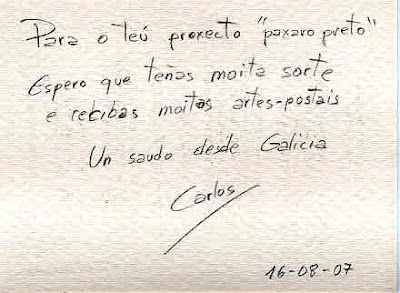 Para o teú proxecto "paxaro preto"
Espero que teñas moita sorte
e recibas moitas artes-postais
Un saudo desde Galicia
Carlos
16-08-07